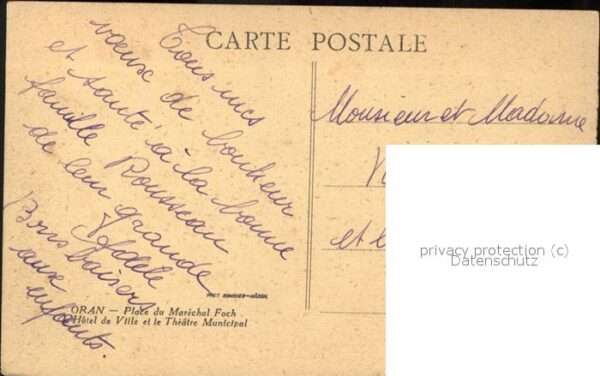 CARTE POSTALE
Tous mes
vœux de bonheur
et santé à la bonne
famille Rousseau
de leur grande
Adèle
Bons baisers
aux
enfants.
Monsieur et Madame
et
ORAN — Place du Maréchal Foch
Hôtel de Ville et le Théâtre Municipal
privacy protection (c)
Datenschutz